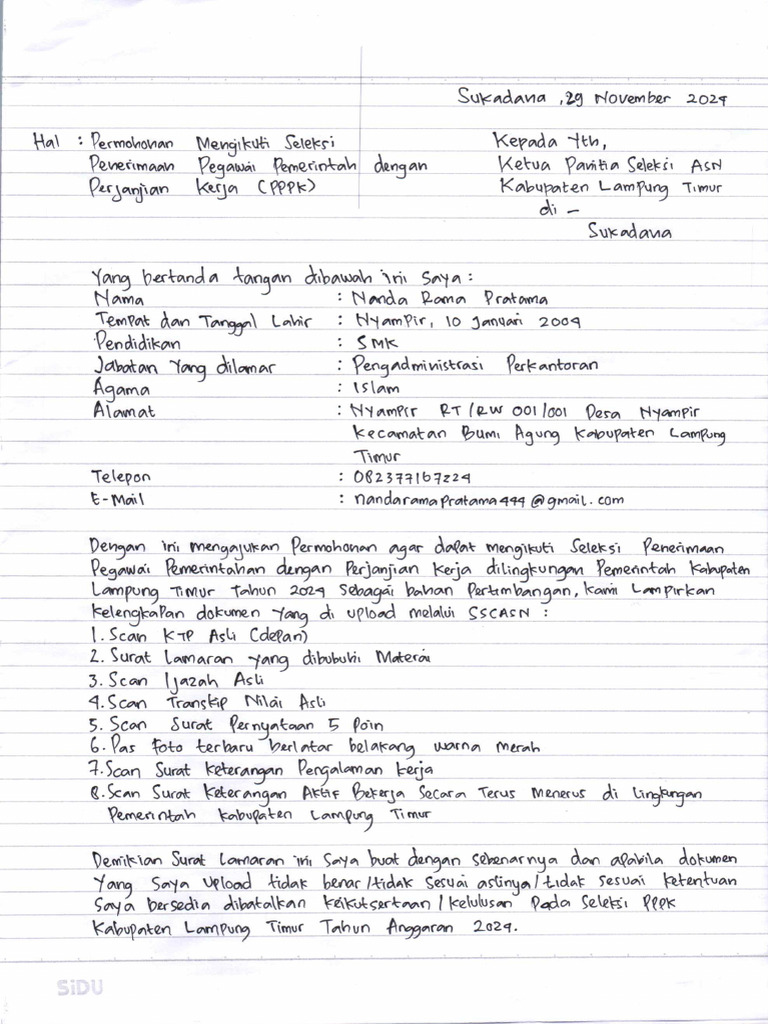 Sukadana, 29 November 2024
Hal : Permohonan Mengikuti Seleksi
Penerimaan Pegawai Pemerintah dengan
Perjanjian Kerja (PPPK)
Kepada Yth,
Ketua Panitia Seleksi ASN
Kabupaten Lampung Timur
di -
Sukadana
Yang bertanda tangan dibawah ini saya :
Nama : Nanda Rama Pratama
Tempat dan Tanggal Lahir : Nyampir, 10 Januari 2004
Pendidikan : SMK
Jabatan Yang dilamar : Pengadministrasi Perkantoran
Agama : Islam
Alamat : Nyampir RT/RW 001/001 Desa Nyampir
Kecamatan Bumi Agung Kabupaten Lampung
Timur
Telepon : 082377167224
E-Mail : nandaramapratama444@gmail.com
Dengan ini mengajukan Permohonan agar dapat mengikuti Seleksi Penerimaan
Pegawai Pemerintahan dengan Perjanjian Kerja dilingkungan Pemerintah Kabupaten
Lampung Timur Tahun 2024 sebagai bahan Pertimbangan, kami Lampirkan
Kelengkapan dokumen yang di upload melalui SSCASN :
1. Scan KTP Asli (depan)
2. Surat Lamaran yang dibubuhi Materai
3. Scan Ijazah Asli
4. Scan Transkip Nilai Asli
5. Scan Surat Pernyataan 5 Poin
6. Pas Foto terbaru berlatar belakang warna merah
7. Scan Surat Keterangan Pengalaman Kerja
8. Scan Surat Keterangan Aktif Bekerja Secara Terus Menerus di Lingkungan
Pemerintah Kabupaten Lampung Timur
Demikian Surat Lamaran ini Saya buat dengan sebenarnya dan apabila dokumen
Yang Saya Upload tidak benar/tidak sesuai aslinya/tidak sesuai ketentuan
Saya bersedia dibatalkan keikutsertaan/kelulusan Pada Seleksi PPPK
Kabupaten Lampung Timur Tahun Anggaran 2024.
SiDU